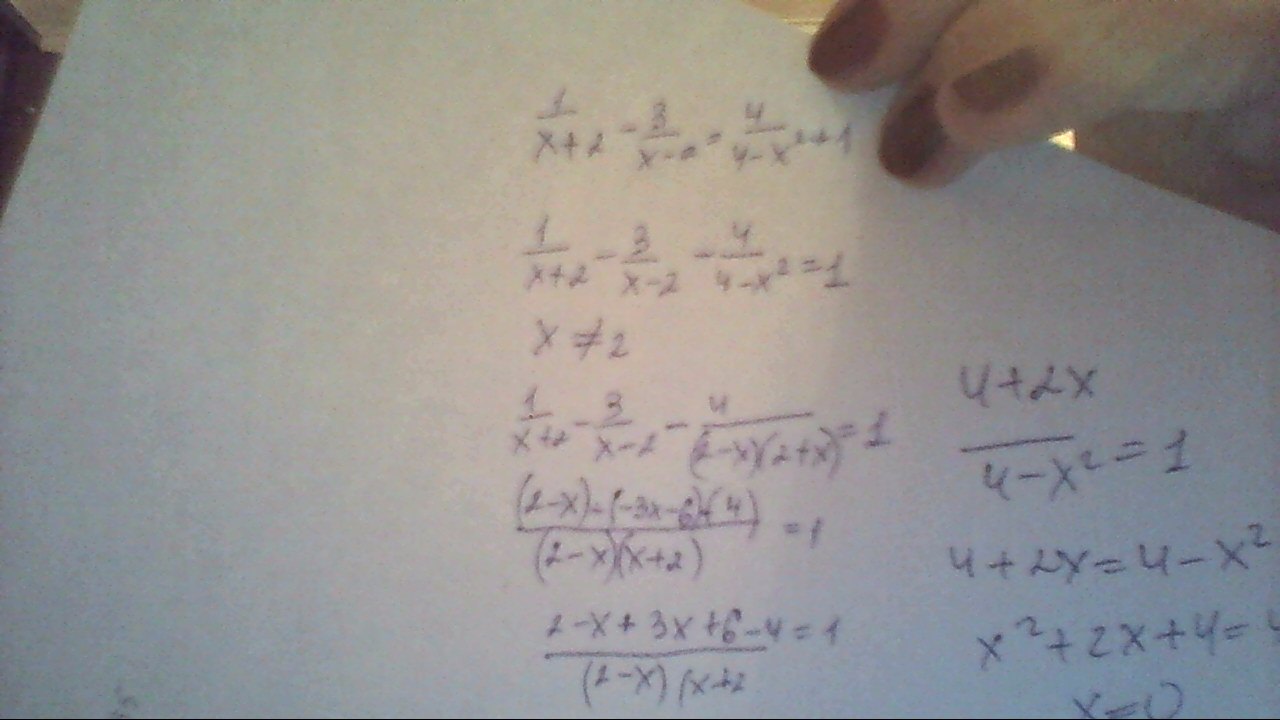 1/(x+2) - 3/(x-2) = 4/(4-x²) + 1
1/(x+2) - 3/(x-2) - 4/(4-x²) = 1
x ≠ 2
1/(x+2) - 3/(x-2) - 4/((2-x)(2+x)) = 1
((2-x)-(-3x-6)-(4))/((2-x)(x+2)) = 1
(2-x+3x+6-4)/((2-x)(x+2) = 1
(4+2x)/(4-x²) = 1
4+2x=4-x²
x²+2x+4=4
x=0